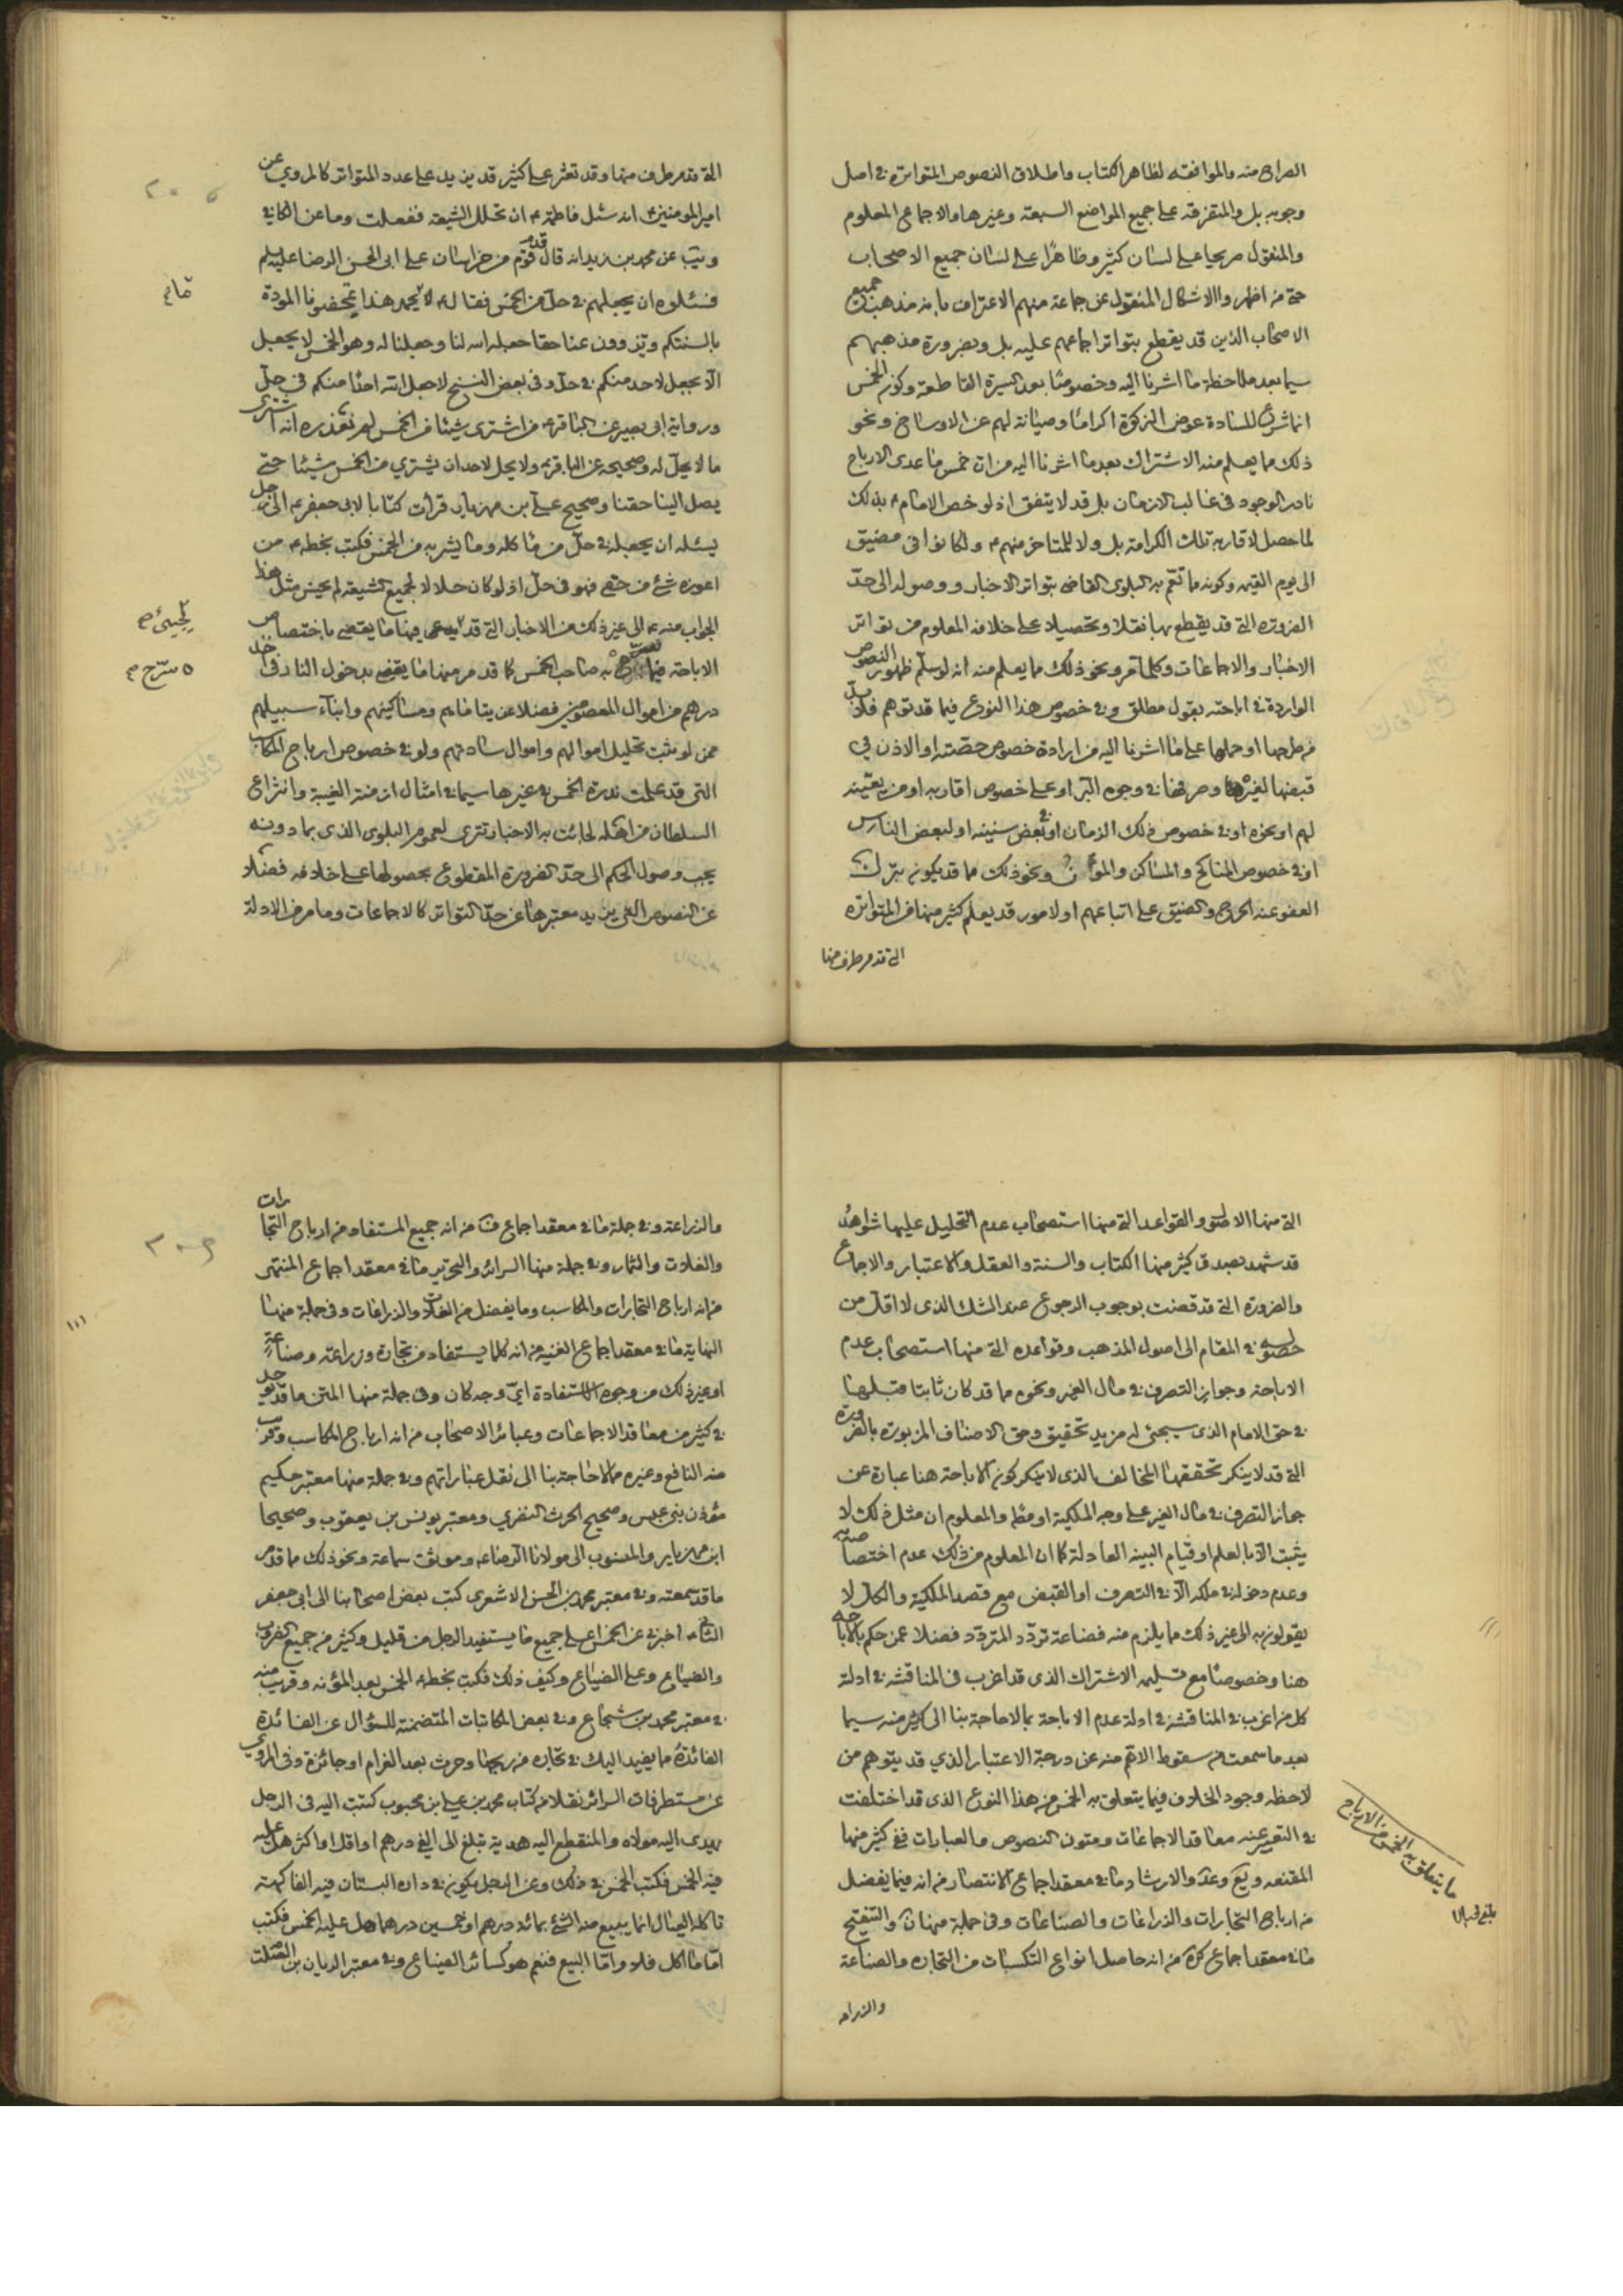 الصراح منه والموافقه لظاهر الكتاب واطلاق النصوص المتواتره في اصل
وجوبه بل والمتفرقه على جميع المواضع السبعة وغيرها والاجماع المعلوم
والمنقول صريحا على لسان كثير وظاهرا على لسان جميع الاصحاب
حتى من اظهر والاشكال المنقول عن جماعة منهم الاعتراف بانه مذهب جميع
الاصحاب الذين قد يقطع بتواتر اجماعهم عليه بل وبضرورة مذهبهم
سيما بعد ملاحظة ما اشرنا اليه وخصوصا بعد السيرة القاطعة وكون الخمس
انما شرع للسادة عوض الزكوة اكراما وصيانة لهم عن الاوساخ ونحو
ذلك مما يعلم منه الاشتراك بعد ما اشرنا اليه من ان خمس ما عدى الارباح
نادر الوجود في غالب الازمان بل قد لا يتفق اذ لو خص الامام ع بذلك
لما حصل لاقاربه تلك الكرامة بل ولا للمتاخر منهم ع ولكانوا في مضيق
الى يوم القيمه وكونه ما تعم به البلوى القاضي بتواتر الاخبار ووصوله الى حد
الضروره التي قد يقطع بها نقلا وتحصيلا على خلافه المعلوم من تواتر
الاخبار والاجماعات وكلما مر ونحو ذلك مما يعلم منه انه لو سلم ظهور النصوص
الواردة في اباحته بقول مطلق وفي خصوص هذا النوع فيما قد توهم فلا بد
من طرحها او حملها على ما اشرنا اليه من ارادة خصوص حصته او الاذن في
قبضها لغيرها وصرفها في وجوه البر او على خصوص اقاربه او من يعينه
لهم او نحوه او في خصوص ذلك الزمان او في بعض سنينه او لبعض الناس
او في خصوص المناكح والمساكن والمؤن ونحو ذلك مما قد يكون بترك
العفو عنه الحرج والضيق على اتباعهم او لامور قد يعلم كثير منها من المتواتره
التي قد مر طرف منها
التي قد مر طرف منها وقد تعثر على كثير قد يزيد على عدد المتواتر كالمروي عن
امير المومنين ع انه سئل فاطمة ع ان تحلل الشيعة ففعلت وما عن الكافي
ويب عن محمد بن زيد انه قال قدم قوم من خراسان على ابي الحسن الرضا عليه سلم
فسئلوه ان يجعلهم في حل من الخمس فقال ما امحل هذا تمحضونا المودة
بالسنتكم وتزوون عنا حقا جعله الله لنا وجعلنا له وهو الخمس لا نجعل
لا نجعل لاحد منكم في حل وفي بعض النسخ لا جعل الله احدا منكم في حل
ورواية ابي بصير عن الباقر ع من اشترى شيئا من الخمس لم يعذره الله اشترى
ما لا يحل له وصحيحه عن الباقر ع ولا يحل لاحد ان يشتري من الخمس شيئا حتى
يصل الينا حقنا وصحيح علي بن مهزيار قرات كتابا لابي جعفر ع الى رجل
يسئله ان يجعله في حل من ماكله ومشربه من الخمس فكتب بخطه ع من
اعوزه شئ من حقي فهو في حل اذ لو كان حلالا لجميع الشيعة لم يحسن مثل هذا
الجواب منه ع الى غير ذلك من الاخبار التي قد يدعى فيها ما يقضي باختصاص
الاباحة فيما به صاحب الخمس كما قد مر منها ما يقضي بدخول النار في اخذ
درهم من اموال المعصومين فضلا عن يتاماهم ومساكينهم وابناء سبيلهم
ممن لو ثبت تحليل اموالهم واموال ساداتهم ولو في خصوص ارباح المكاسب
التي قد علمت ندرة الخمس في غيرها سيما في امثال ازمنة الغيبة وانتزاع
السلطان من اهله لجائت به الاخبار تترى لعموم البلوى الذي بما دونه
يجب وصول الحكم الى حد الضرورة المقطوع بحصولها على خلافه فضلا
عن النصوص التي يزيد معتبرها عن حد التواتر كالاجماعات وما مر من الادلة
التي منها الاصل والقواعد التي منها استصحاب عدم التحليل عليها شواهد
قد شهد بصدق كثير منها الكتاب والسنة والعقل والاعتبار والاجماع
والضرورة التي قد قضت بوجوب الرجوع عند الشك الذي لا اقل من
حصوله في المقام الى اصول المذهب وقواعده التي منها استصحاب عدم
الاباحة وجواز التصرف في مال الغير ونحوه مما قد كان ثابتا قبلها
في حق الامام الذي سيجئ له مزيد تحقيق وحق الاصناف المزبورة بالضرورة
التي قد لا ينكر تحققها المخالف الذي لا ينكر كون الاباحة هنا عبارة عن
جواز التصرف في مال الغير على وجه الملكية او مط والمعلوم ان مثل ذلك لا
يثبت الا بالعلم او قيام البينه العادلة كما ان المعلوم من ذلك عدم اختصاصه
وعدم دخوله في ملكه الا في التصرف او القبض مع قصد الملكية والكل لا
يقولون به الى غير ذلك مما يلزم منه فضاعة تردد المتردد فضلا عمن حكم بالاباحه
هنا وخصوصا مع تسليمه الاشتراك الذي قد اغرب في المناقشه في ادلة
كل من اغرب في المناقشه في ادلة عدم الاباحة بما لا حاجة بنا الى كثير منه سيما
بعد ما سمعت من سقوط الاتم منه عن درجة الاعتبار الذي قد يتوهم من
لاحظه وجود الخلاف فيما يتعلق به الخمس من هذا النوع الذي قد اختلفت
في التعبير عنه معاقد الاجماعات ومتون النصوص والعبارات ففي كثير منها
المقنعه ويع وعد والارشاد ما في معقد اجماع الانتصار من انه فيما يفضل
من ارباح التجارات والزراعات والصناعات وفي جملة منها ن والتنقيح
ما في معقد اجماع كره من انه حاصل انواع التكسبات من التجاره والصناعة
والزراعه
ما يتعلق به الخمس من الارباح
والزراعة وفي جملة ما في معقد اجماع ف من انه جميع المستفاد من ارباح التجارات
والغلات والثمار وفي جملة منها السرائر والتحرير ما في معقد اجماع المنتهى
من انه ارباح التجارات والمكاسب وما يفضل من الغلات والزراعات وفي جملة منها
النهاية ما في معقد اجماع الغنيه من انه كلما يستفاد من تجارة وزراعة وصناعة
او غير ذلك من وجوه الاستفادة اي وجه كان وفي جملة منها المتن ما قد يوجد
في كثير من معاقد الاجماعات وعبائر الاصحاب من انه ارباح المكاسب وقرب
منه النافع وغيره مما لا حاجة بنا الى نقل عباراتهم وفي جملة منها معتبر حكيم
مؤذن بني عبس وصحيح الحرث النضري ومعتبر يونس بن يعقوب وصحيحا
ابن مهزيار والمنسوب الى مولانا الرضا ع وموثق سماعة ونحو ذلك مما قد مر
ما قد سمعته وفي معتبر محمد بن الحسن الاشعري كتب بعض اصحابنا الى ابي جعفر
الثاني ع اخبرني عن الخمس اعلى جميع ما يستفيد الرجل من قليل وكثير من جميع الضروب
والضياع وعلى الضياع وكيف ذلك فكتب بخطه ع الخمس بعد المؤنه وقريب منه
في معتبر محمد بن شجاع وفي بعض المكاتبات المتضمنة للسؤال عن الفائدة
الفائدة مما يفيد اليك في تجارة من ربحها وحرث بعد الغرام او جائزة وفي المروي
عن مستطرفات السرائر نقلا من كتاب محمد بن علي بن محبوب كتبت اليه في الرجل
يهدي اليه مولاه والمنقطع اليه هدية تبلغ الى الفي درهم او اقل او اكثر هل عليه
فيه الخمس فكتب الخمس في ذلك وعن الرجل يكون في داره البستان فيه الفاكهة
تاكله العيال انما يبيع منه الشئ بمائة درهم او خمسين درهما هل عليه الخمس فكتب
اما ما اكل فلا واما البيع فنعم هو كسائر الضياع وفي معتبر الريان بن الصلت